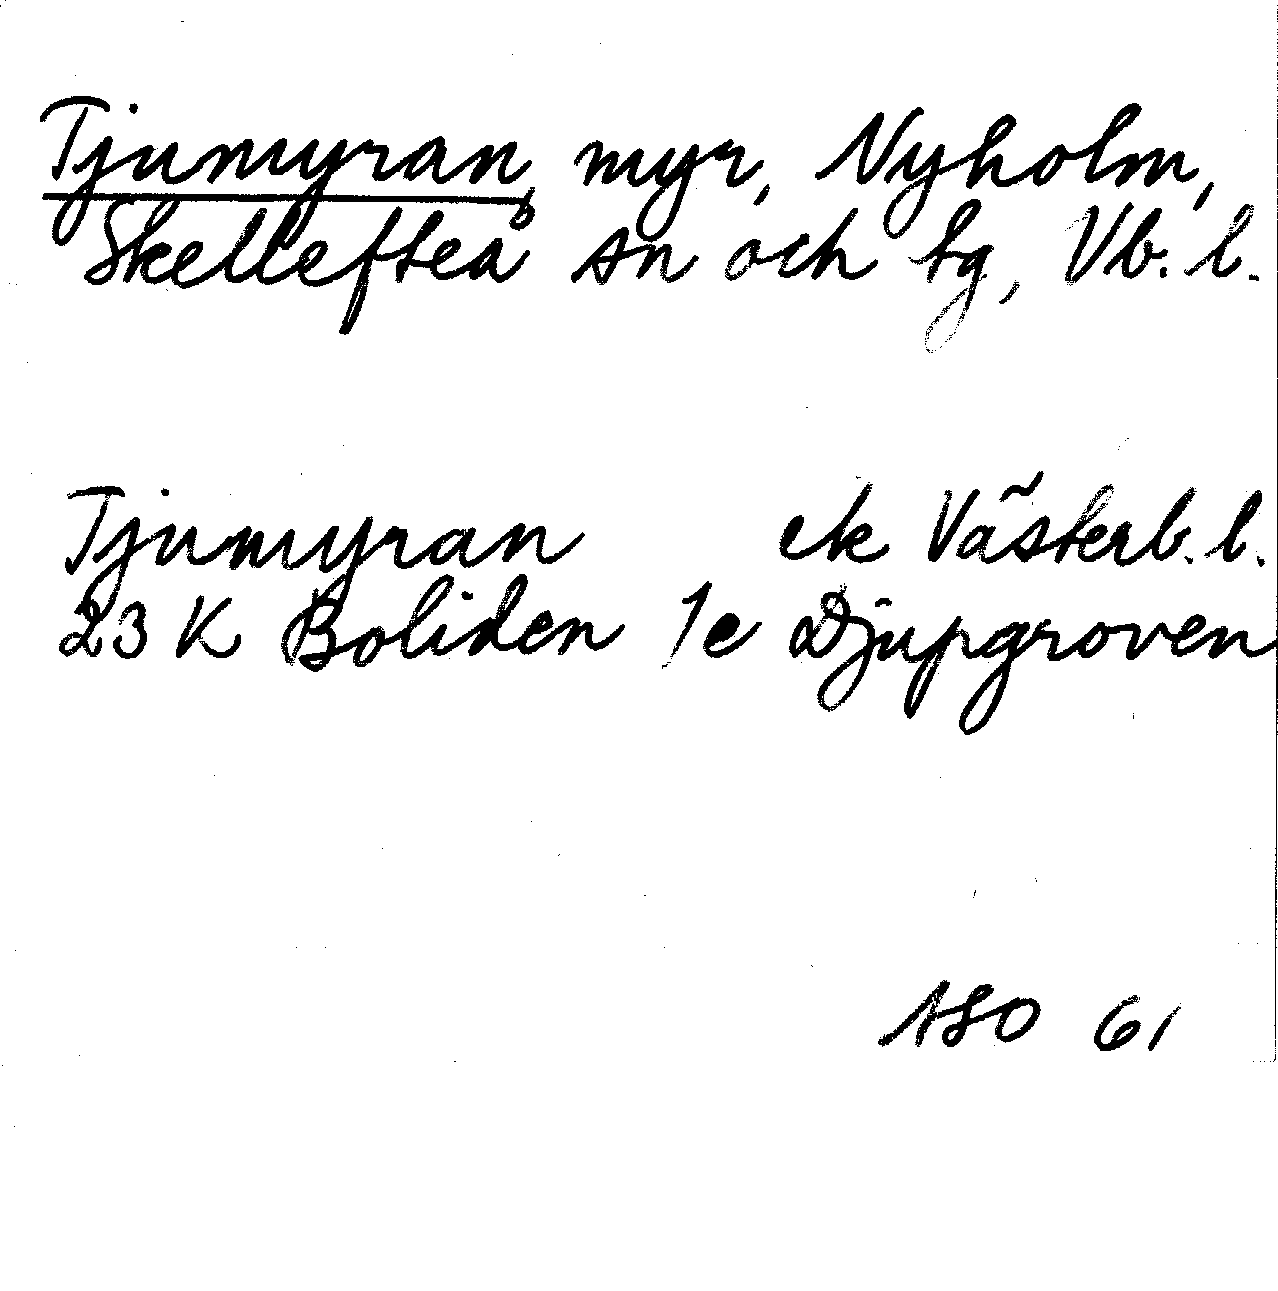 Tjumyran, myr, Nyholm,
Skellefteå sn och tg, Vb. l.
Tjumyran ek Västerb. l.
23 K Boliden 1e Djupgroven
ASO 61